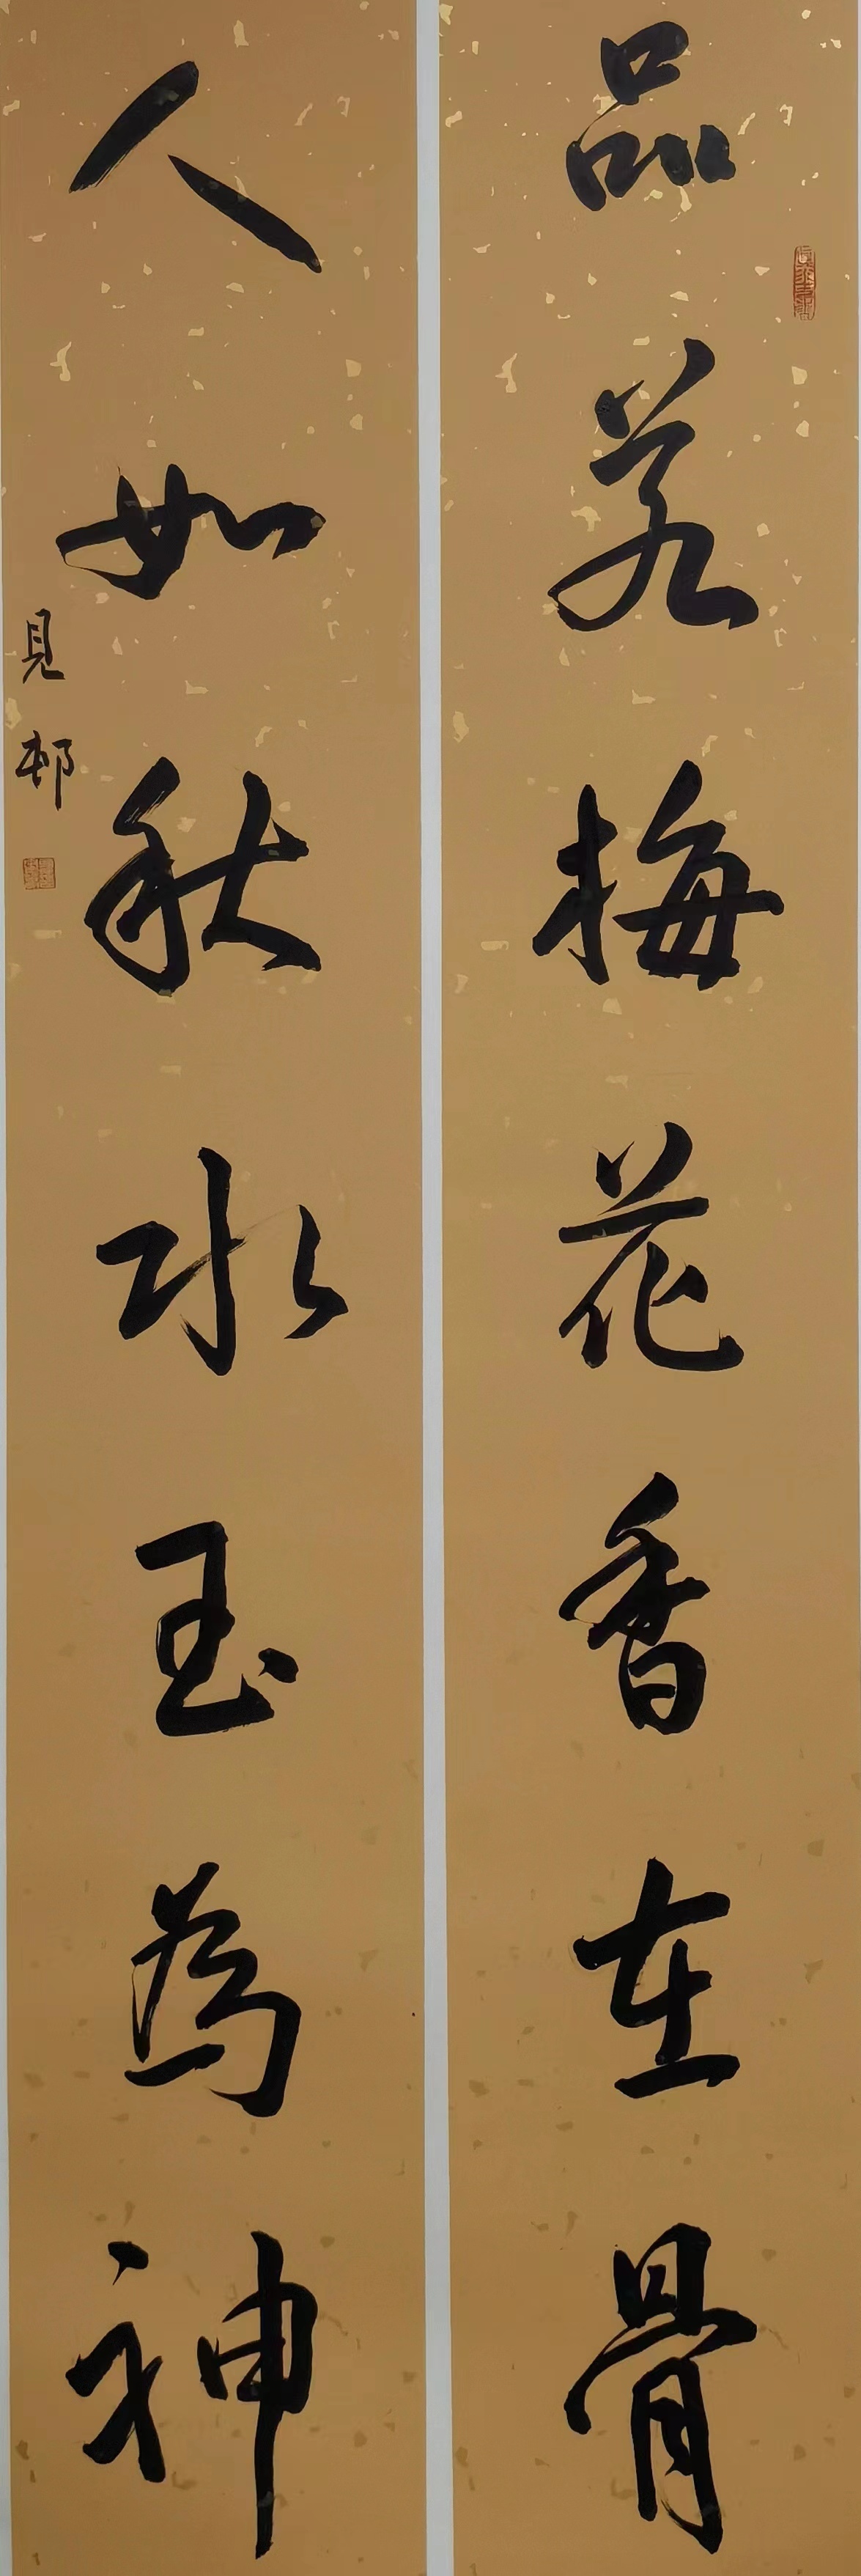 品若梅花香在骨
人如秋水玉为神
見邨